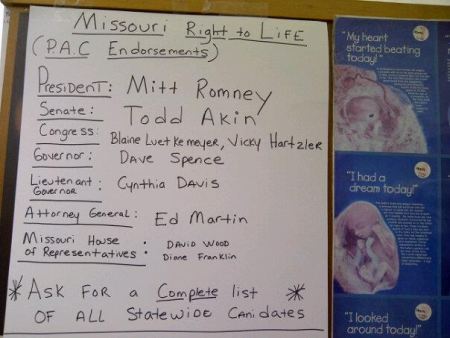 Missouri Right to Life
(P.A.C Endorsements)
President: Mitt Romney
Senate: Todd Akin
Congress: Blaine Luetkemeyer, Vicky Hartzler
Governor: Dave Spence
Lieutenant Governor: Cynthia Davis
Attorney General: Ed Martin
Missouri House : David Wood
of Representatives • Diane Franklin
* Ask For a Complete list *
OF ALL Statewide Canidates
"My heart
started beating
today!"
"I had a
dream today!"
"I looked
around today!"